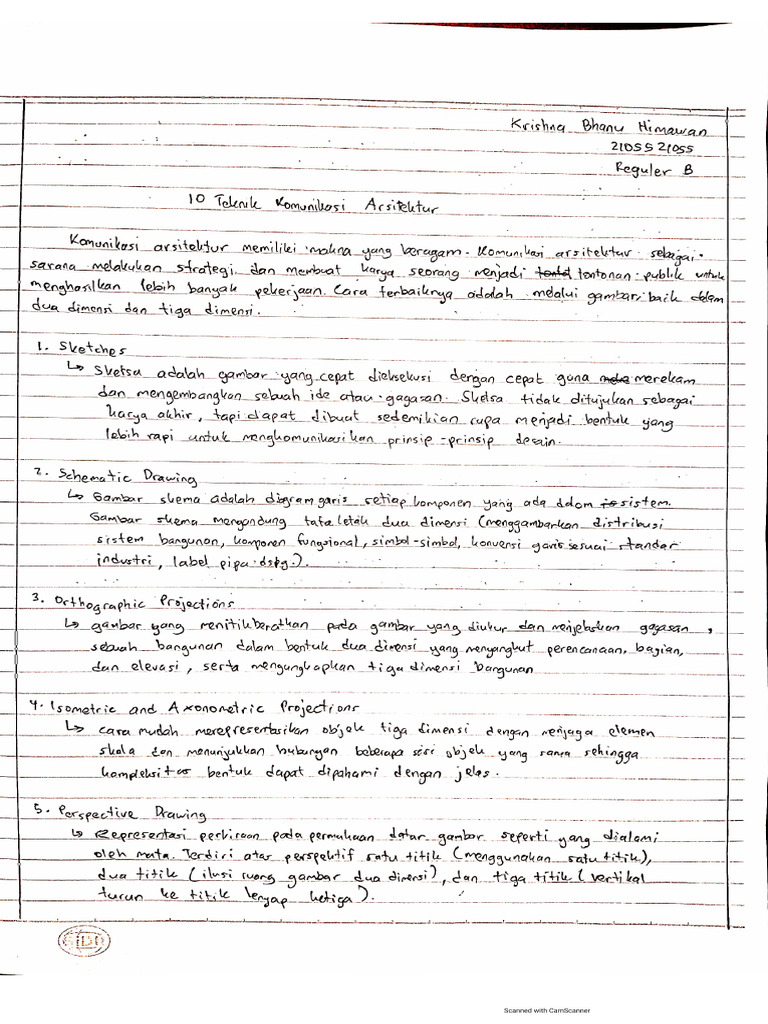 Krishna Bhanu Himawan
2105521055
Reguler B
10 Teknik Komunikasi Arsitektur
Komunikasi arsitektur memiliki makna yang beragam. Komunikasi arsitektur sebagai
sarana melakukan strategi, dan membuat karya seorang menjadi tontonan publik untuk
menghasilkan lebih banyak pekerjaan. Cara terbaiknya adalah melalui gambar, baik dalam
dua dimensi dan tiga dimensi.
1. Sketches
↳ Sketsa adalah gambar yang cepat dieksekusi dengan cepat guna merekam
dan mengembangkan sebuah ide atau gagasan. Sketsa tidak ditujukan sebagai
karya akhir, tapi dapat dibuat sedemikian rupa menjadi bentuk yang
lebih rapi untuk mengkomunikasikan prinsip-prinsip desain.
2. Schematic Drawing
↳ Gambar skema adalah diagram garis setiap komponen yang ada dalam sistem.
Gambar skema mengandung tata letak dua dimensi (menggambarkan distribusi
sistem bangunan, komponen fungsional, simbol-simbol, konvensi garis sesuai standar
industri, label pipa dsbg.).
3. Orthographic Projections
↳ gambar yang menitikberatkan pada gambar yang diukur dan menjelaskan gagasan,
sebuah bangunan dalam bentuk dua dimensi yang menyangkut perencanaan, bagian,
dan elevasi, serta mengungkapkan tiga dimensi bangunan
4. Isometric and Axonometric Projections
↳ cara mudah merepresentasikan objek tiga dimensi dengan menjaga elemen
skala dan menunjukkan hubungan beberapa sisi objek yang sama sehingga
kompleksitas bentuk dapat dipahami dengan jelas.
5. Perspective Drawing
↳ Representasi perkiraan pada permukaan datar gambar seperti yang dialami
oleh mata. Terdiri atas perspektif satu titik (menggunakan satu titik),
dua titik (ilusi ruang gambar dua dimensi), dan tiga titik (vertikal
turun ke titik lenyap ketiga).
SiDU
Scanned with CamScanner